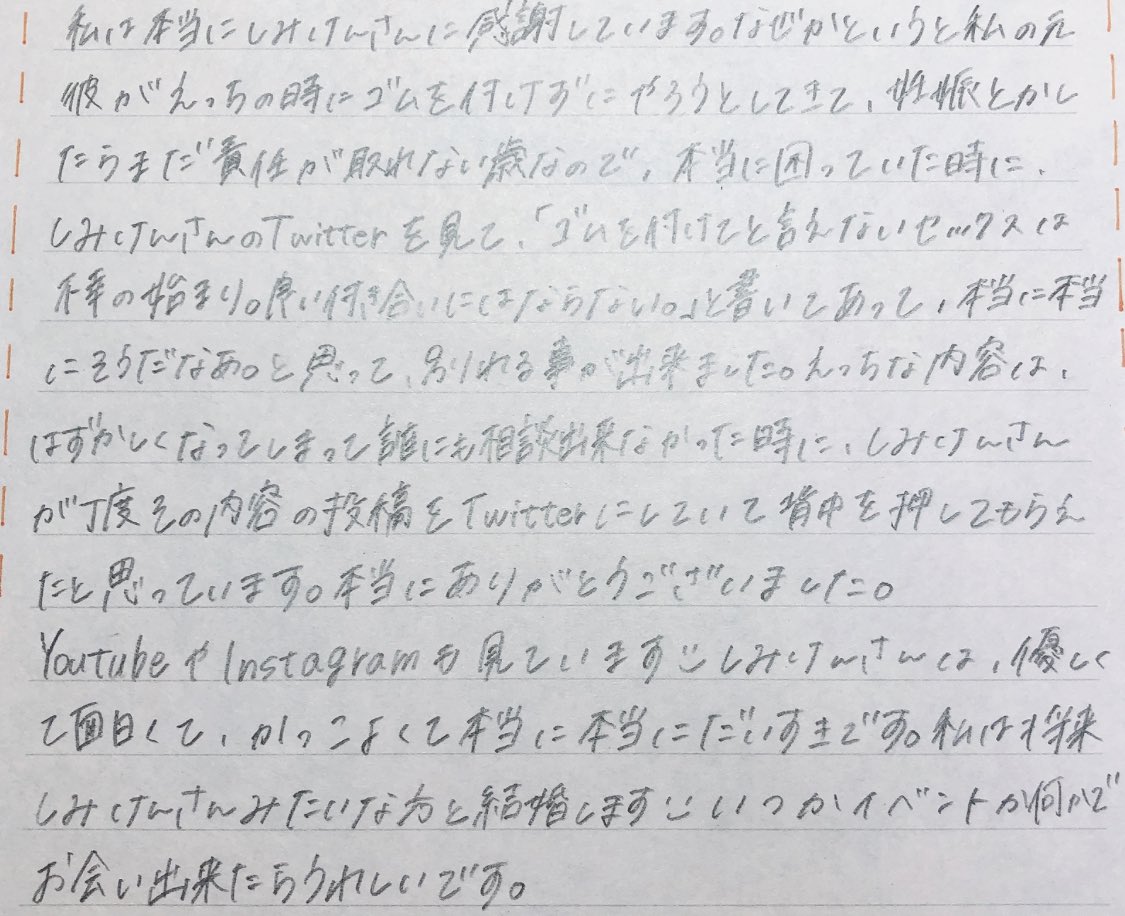 私は本当にしみけんさんに感謝しています。なぜかというと私の元
彼がえっちの時にゴムを付けずにやろうとしてきて、妊娠とかし
たらまだ責任が取れない歳なので、本当に困っていた時に、
しみけんさんのTwitterを見て、「ゴムを付けてと言えないセックスは
不幸の始まり。良い付き合いにはならない。」と書いてあって、本当に本当
にそうだなあ。と思って、別れる事が出来ました。えっちな内容は、
はずかしくなってしまって誰にも相談出来なかった時に、しみけんさん
が丁度その内容の投稿をTwitterにしていて背中を押してもらえ
たと思っています。本当にありがとうございました。
YoutubeやInstagramも見ています しみけんさんは、優しく
て面白くて、かっこよくて本当に本当にだいすきです。私は将来
しみけんさんみたいな方と結婚します いつかイベントか何かで
お会い出来たらうれしいです。